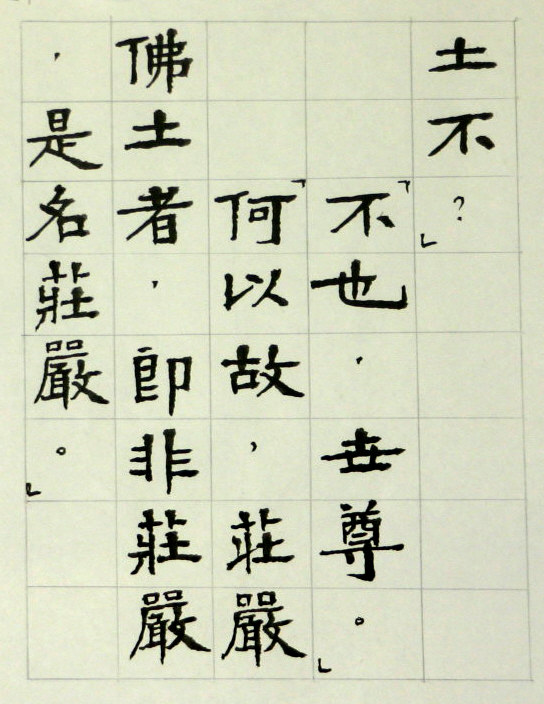 土不?」
「不也,世尊。」
「何以故,莊嚴
佛土者,即非莊嚴
,是名莊嚴。」